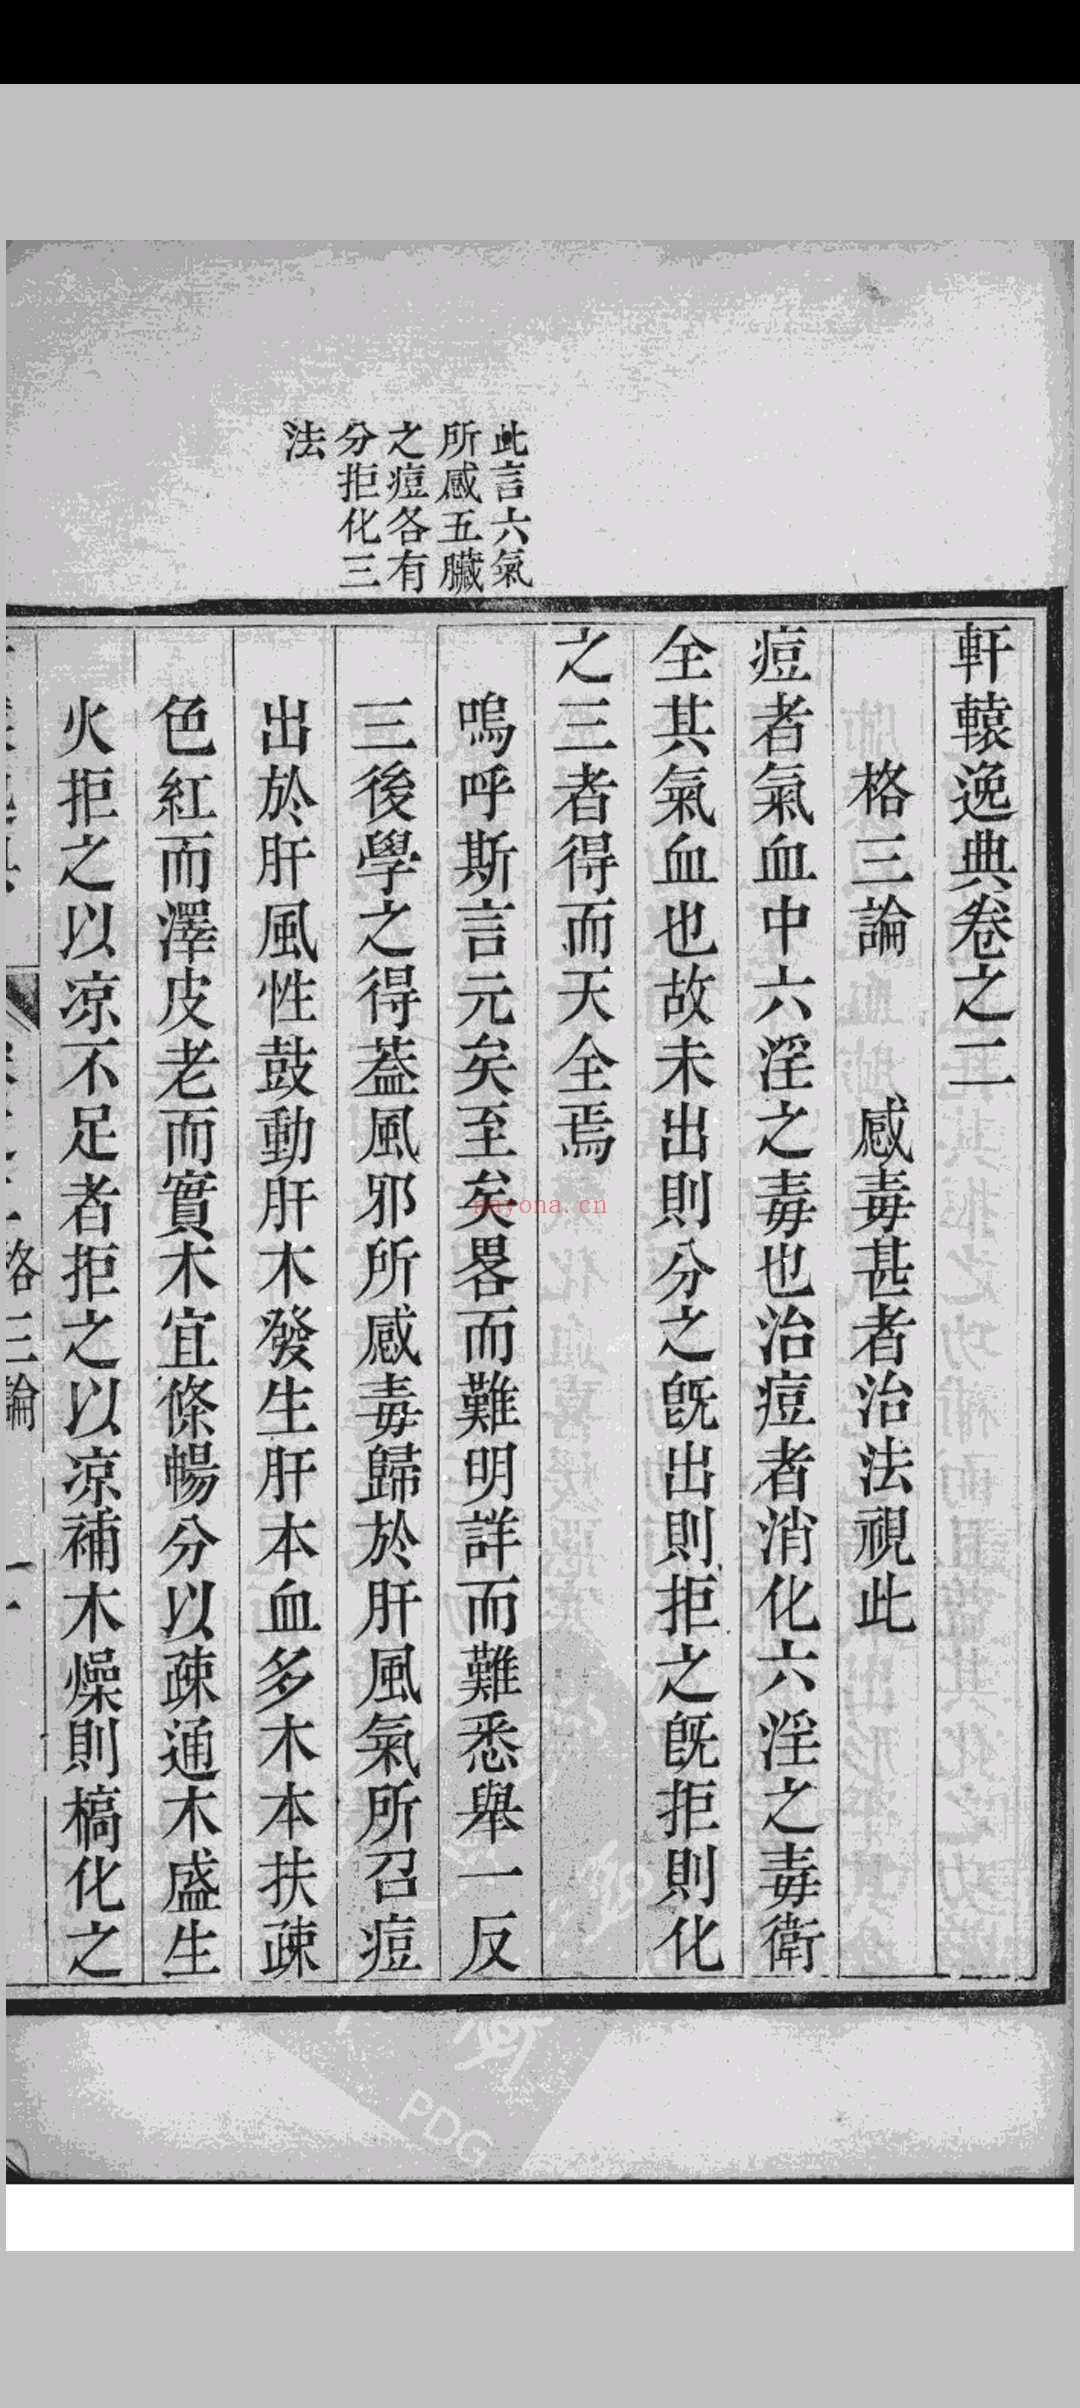 此言六氣
所感五臟
之痘各有
分拒化三
法
軒轅逸典卷之二
格三論　感毒甚者治法視此
痘者氣血中六淫之毒也治痘者消化六淫之毒衛
全其氣血也故未出則分之旣出則拒之旣拒則化
之三者得而天全焉
嗚呼斯言元矣至矣畧而難明詳而難悉舉一反
三後學之得葢風邪所感毒歸於肝風氣所召痘
出於肝風性鼓動肝木發生肝本血多木本扶疎
色紅而澤皮老而實木宜條暢分以疎通木盛生
火拒之以凉不足者拒之以凉補木燥則槁化之
格三論
nayona.cn
PDG